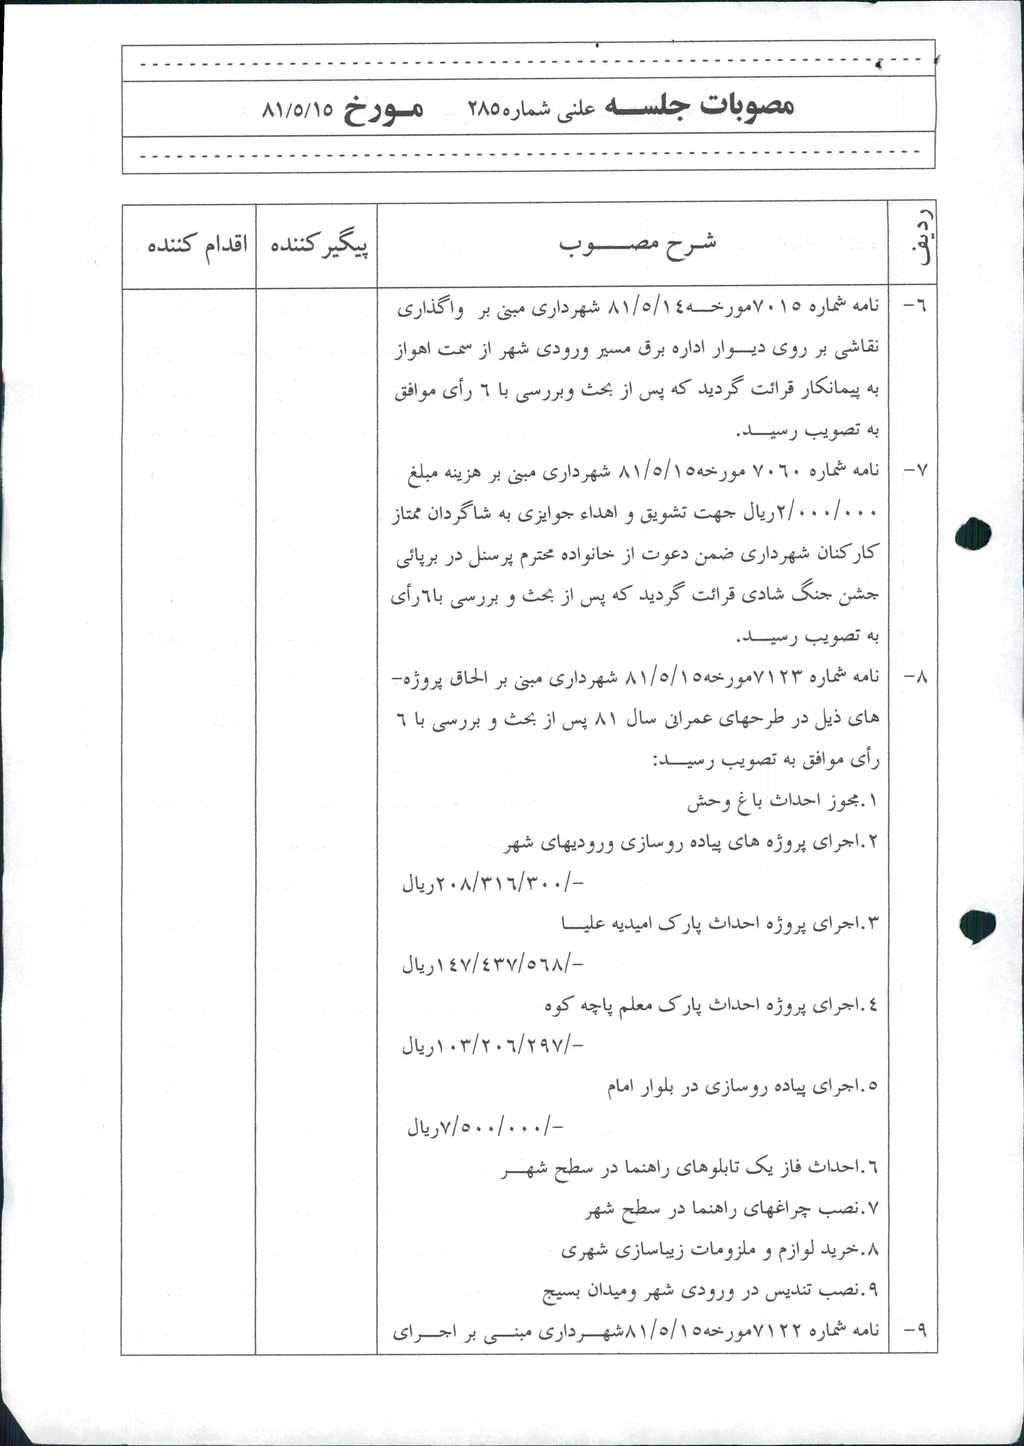 مصوبات جلسـه علنی شماره ۲۸۵ مـورخ ۸۱/۵/۱۵
ردیف شـرح مصـوب پیگیر کننده اقدام کننده
۶- نامه شماره ۷۰۱۵مورخـه۸۱/۵/۱۴ شهرداری مبنی بر واگذاری
نقاشی بر روی دیـوار اداره برق مسیر ورودی شهر از سمت اهواز
به پیمانکار قرائت گردید که پس از بحث وبررسی با ۶ رأی موافق
به تصویب رسیـد.
۷- نامه شماره ۷۰۶۰ مورخه۸۱/۵/۱۵ شهرداری مبنی بر هزینه مبلغ
۲/۰۰۰/۰۰۰ریال جهت تشویق و اهداء جوایزی به شاگردان ممتاز
کارکنان شهرداری ضمن دعوت از خانواده محترم پرسنل در برپائی
جشن جنگ شادی قرائت گردید که پس از بحث و بررسی با۶رأی
به تصویب رسیـد.
۸- نامه شماره ۷۱۲۳مورخه۸۱/۵/۱۵ شهرداری مبنی بر الحاق پروژه-
های ذیل در طرحهای عمرانی سال ۸۱ پس از بحث و بررسی با ۶
رأی موافق به تصویب رسیـد:
۱.مجوز احداث باغ وحش
۲.اجرای پروژه های پیاده روسازی ورودیهای شهر
-/۲۰۸/۳۱۶/۳۰۰ریال
۳.اجرای پروژه احداث پارک امیدیه علیـا
-/۱۴۷/۴۳۷/۵۶۸ریال
۴.اجرای پروژه احداث پارک معلم پاچه کوه
-/۱۰۳/۲۰۶/۲۹۷ریال
۵.اجرای پیاده روسازی در بلوار امام
-/۷/۵۰۰/۰۰۰ریال
۶.احداث فاز یک تابلوهای راهنما در سطح شهـر
۷.نصب چراغهای راهنما در سطح شهر
۸.خرید لوازم و ملزومات زیباسازی شهری
۹.نصب تندیس در ورودی شهر ومیدان بسیج
۹- نامه شماره ۷۱۲۲مورخه۸۱/۵/۱۵شهـرداری مبنـی بر اجـرای